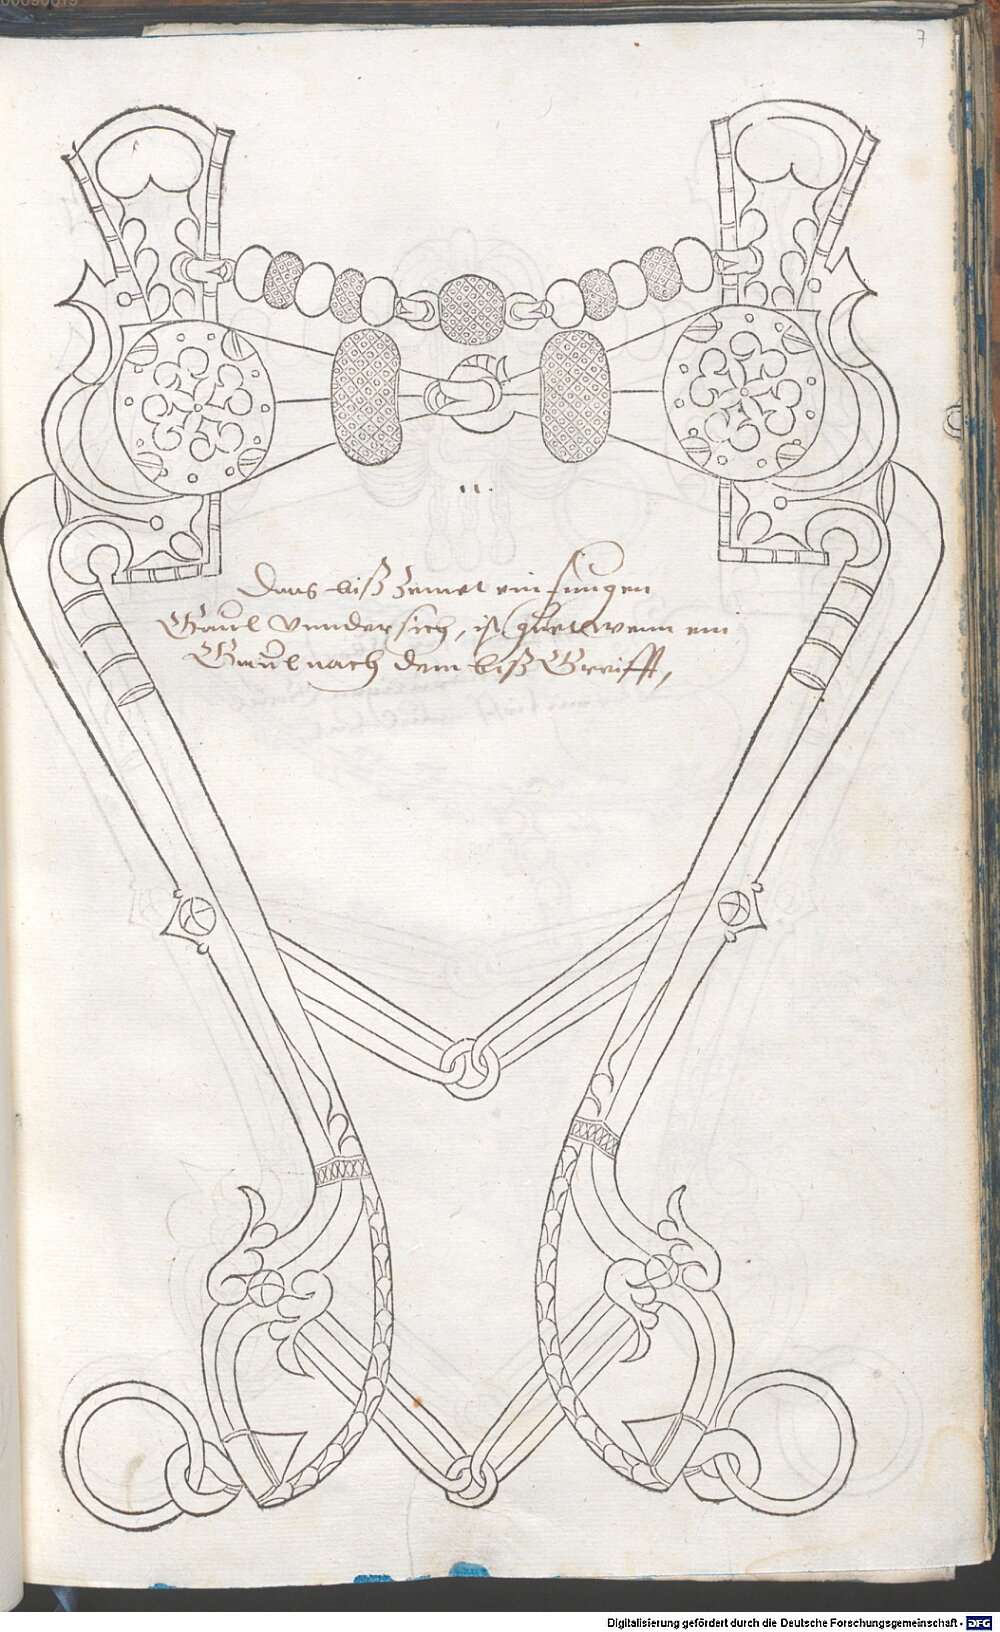 7
11.
Dans biß zemet ein Jungen
Gaul Unndersich, ist guet wenn ein
Gaul nach dem biß Greifft,
Digitalisierung gefördert durch die Deutsche Forschungsgemeinschaft - DFG